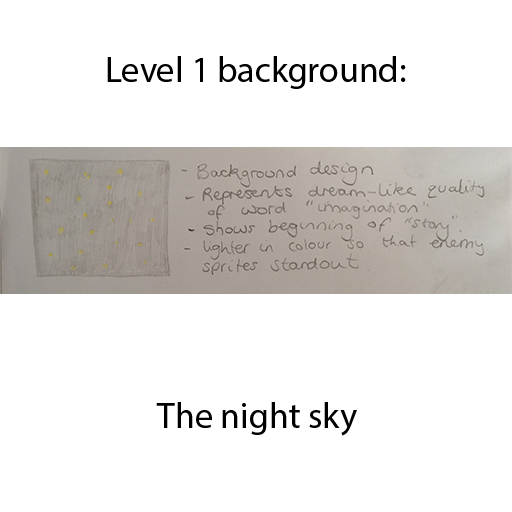 Level 1 background:
- Background design
- Represents dream-like quality
of word "imagination"
- Shows beginning of "story".
- lighter in colour so that enemy
sprites standout
The night sky